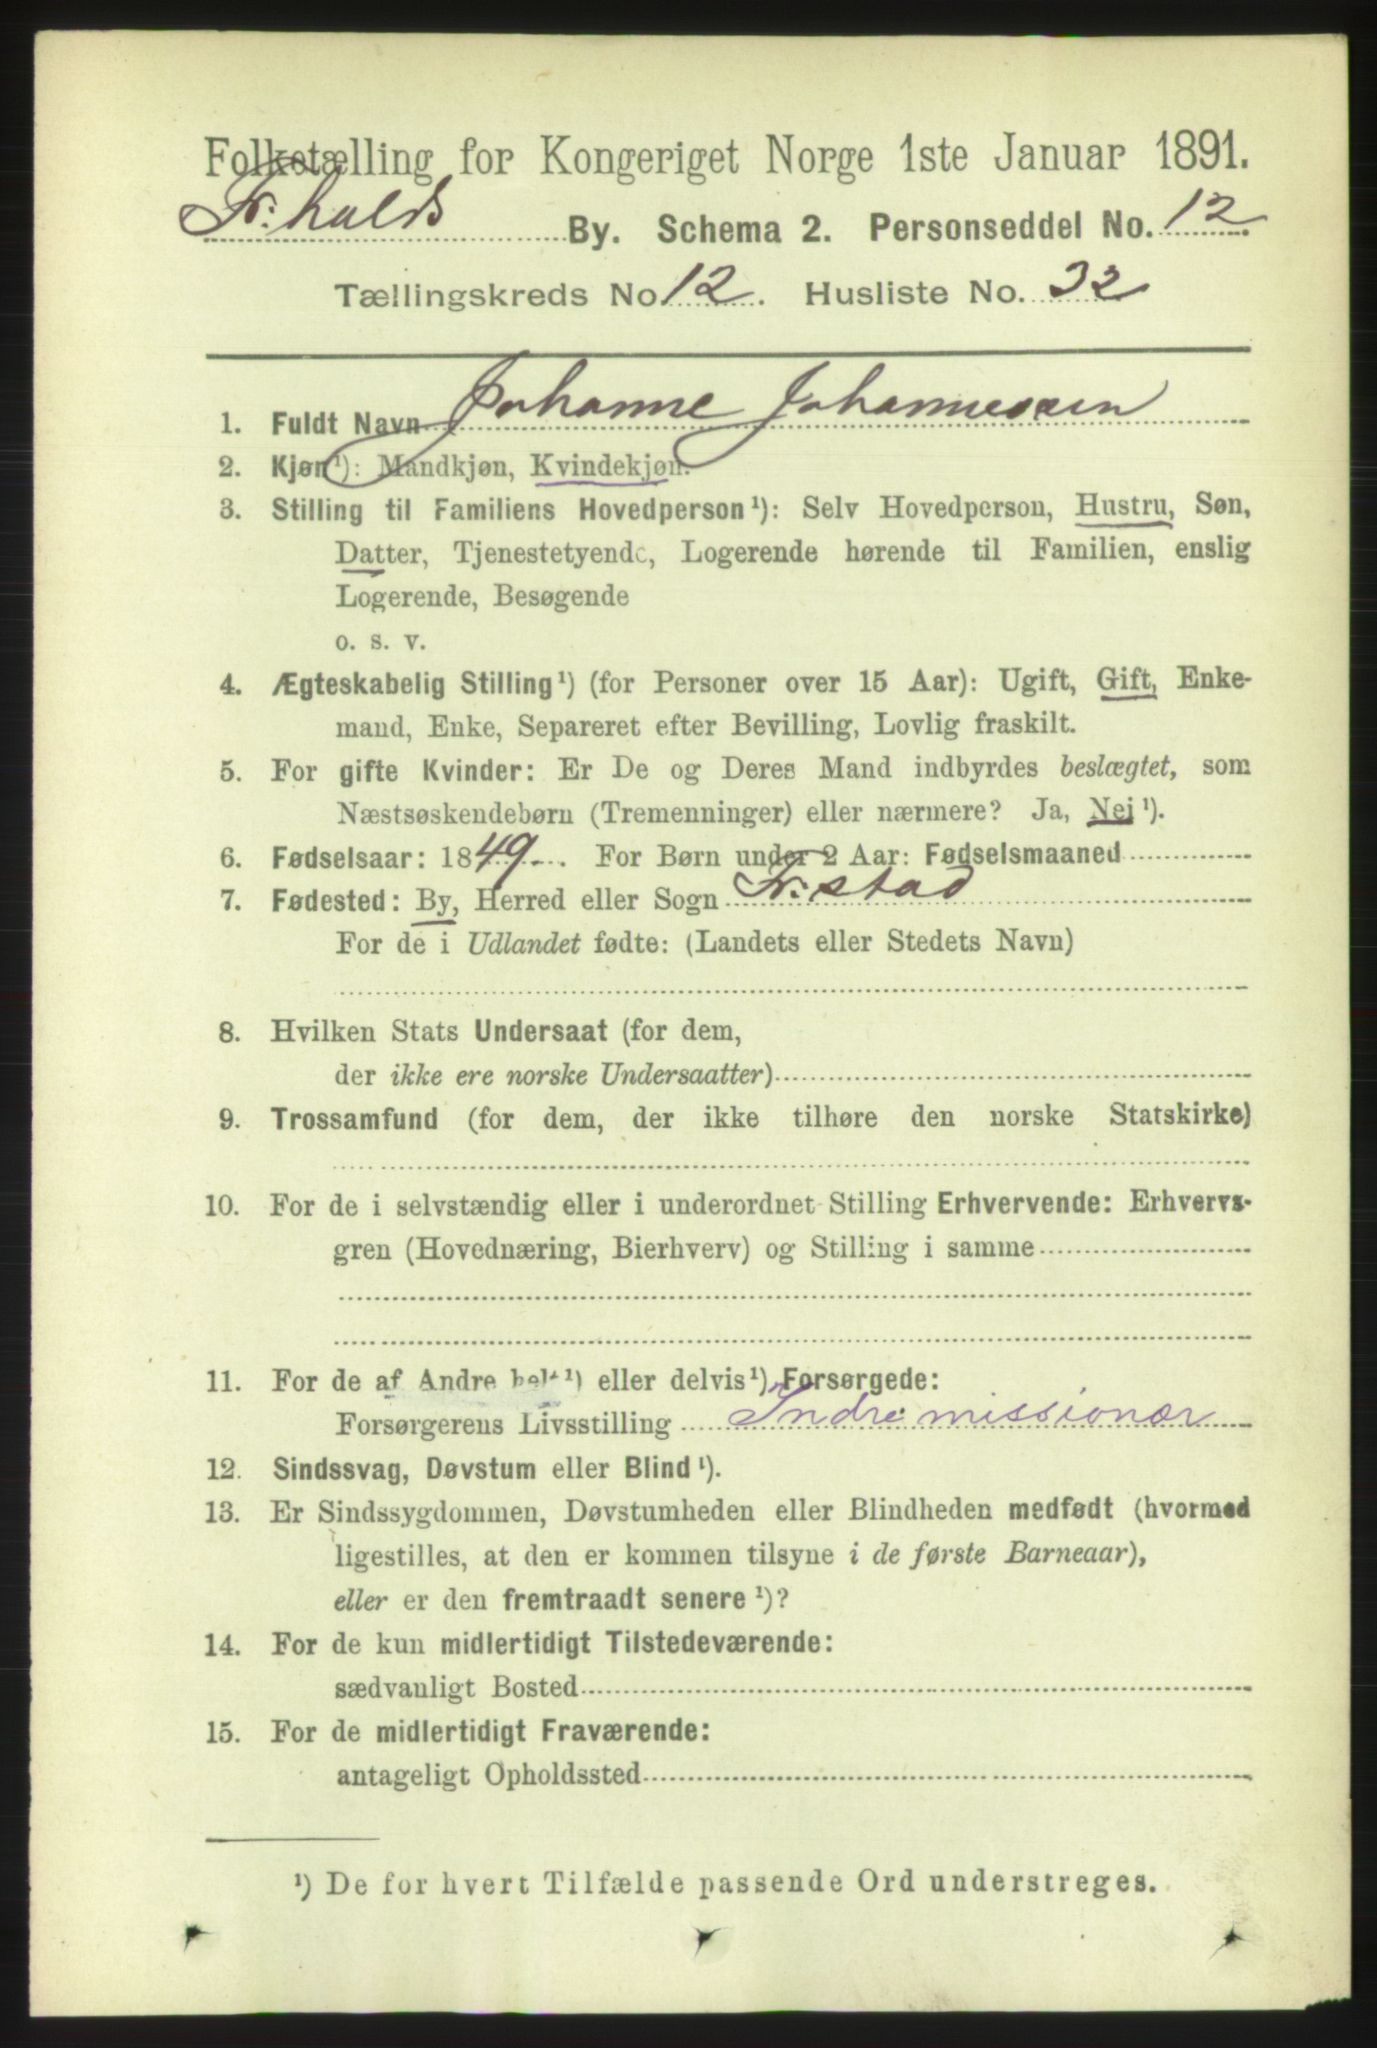 Folketælling for Kongeriget Norge 1ste Januar 1891.
Fr.halds By. Schema 2. Personseddel No. 12.
Tællingskreds No 12. Husliste No. 32
1. Fuldt Navn Johanne Johannessen
2. Kjøn¹): Mandkjøn, Kvindekjøn.
3. Stilling til Familiens Hovedperson¹): Selv Hovedperson, Hustru, Søn,
Datter, Tjenestetyende, Logerende hørende til Familien, enslig
Logerende, Besøgende
o. s. v.
4. Ægteskabelig Stilling¹) (for Personer over 15 Aar): Ugift, Gift, Enke-
mand, Enke, Separeret efter Bevilling, Lovlig fraskilt.
5. For gifte Kvinder: Er De og Deres Mand indbyrdes beslægtet, som
Næstsøskendebørn (Tremenninger) eller nærmere? Ja, Nei¹).
6. Fødselsaar: 1849. For Børn under 2 Aar: Fødselsmaaned
7. Fødested: By, Herred eller Sogn Fr.stad
For de i Udlandet fødte: (Landets eller Stedets Navn)
8. Hvilken Stats Undersaat (for dem,
der ikke ere norske Undersaatter)
9. Trossamfund (for dem, der ikke tilhøre den norske Statskirke)
10. For de i selvstændig eller i underordnet Stilling Erhvervende: Erhvervs-
gren (Hovednæring, Bierhverv) og Stilling i samme
11. For de af Andre helt¹) eller delvis¹) Forsørgede:
Forsørgerens Livsstilling Indremissionær
12. Sindssvag, Døvstum eller Blind¹).
13. Er Sindssygdommen, Døvstumheden eller Blindheden medfødt (hvormed
ligestilles, at den er kommen tilsyne i de første Barneaar),
eller er den fremtraadt senere¹)?
14. For de kun midlertidigt Tilstedeværende:
sædvanligt Bosted
15. For de midlertidigt Fraværende:
antageligt Opholdssted
¹) De for hvert Tilfælde passende Ord understreges.